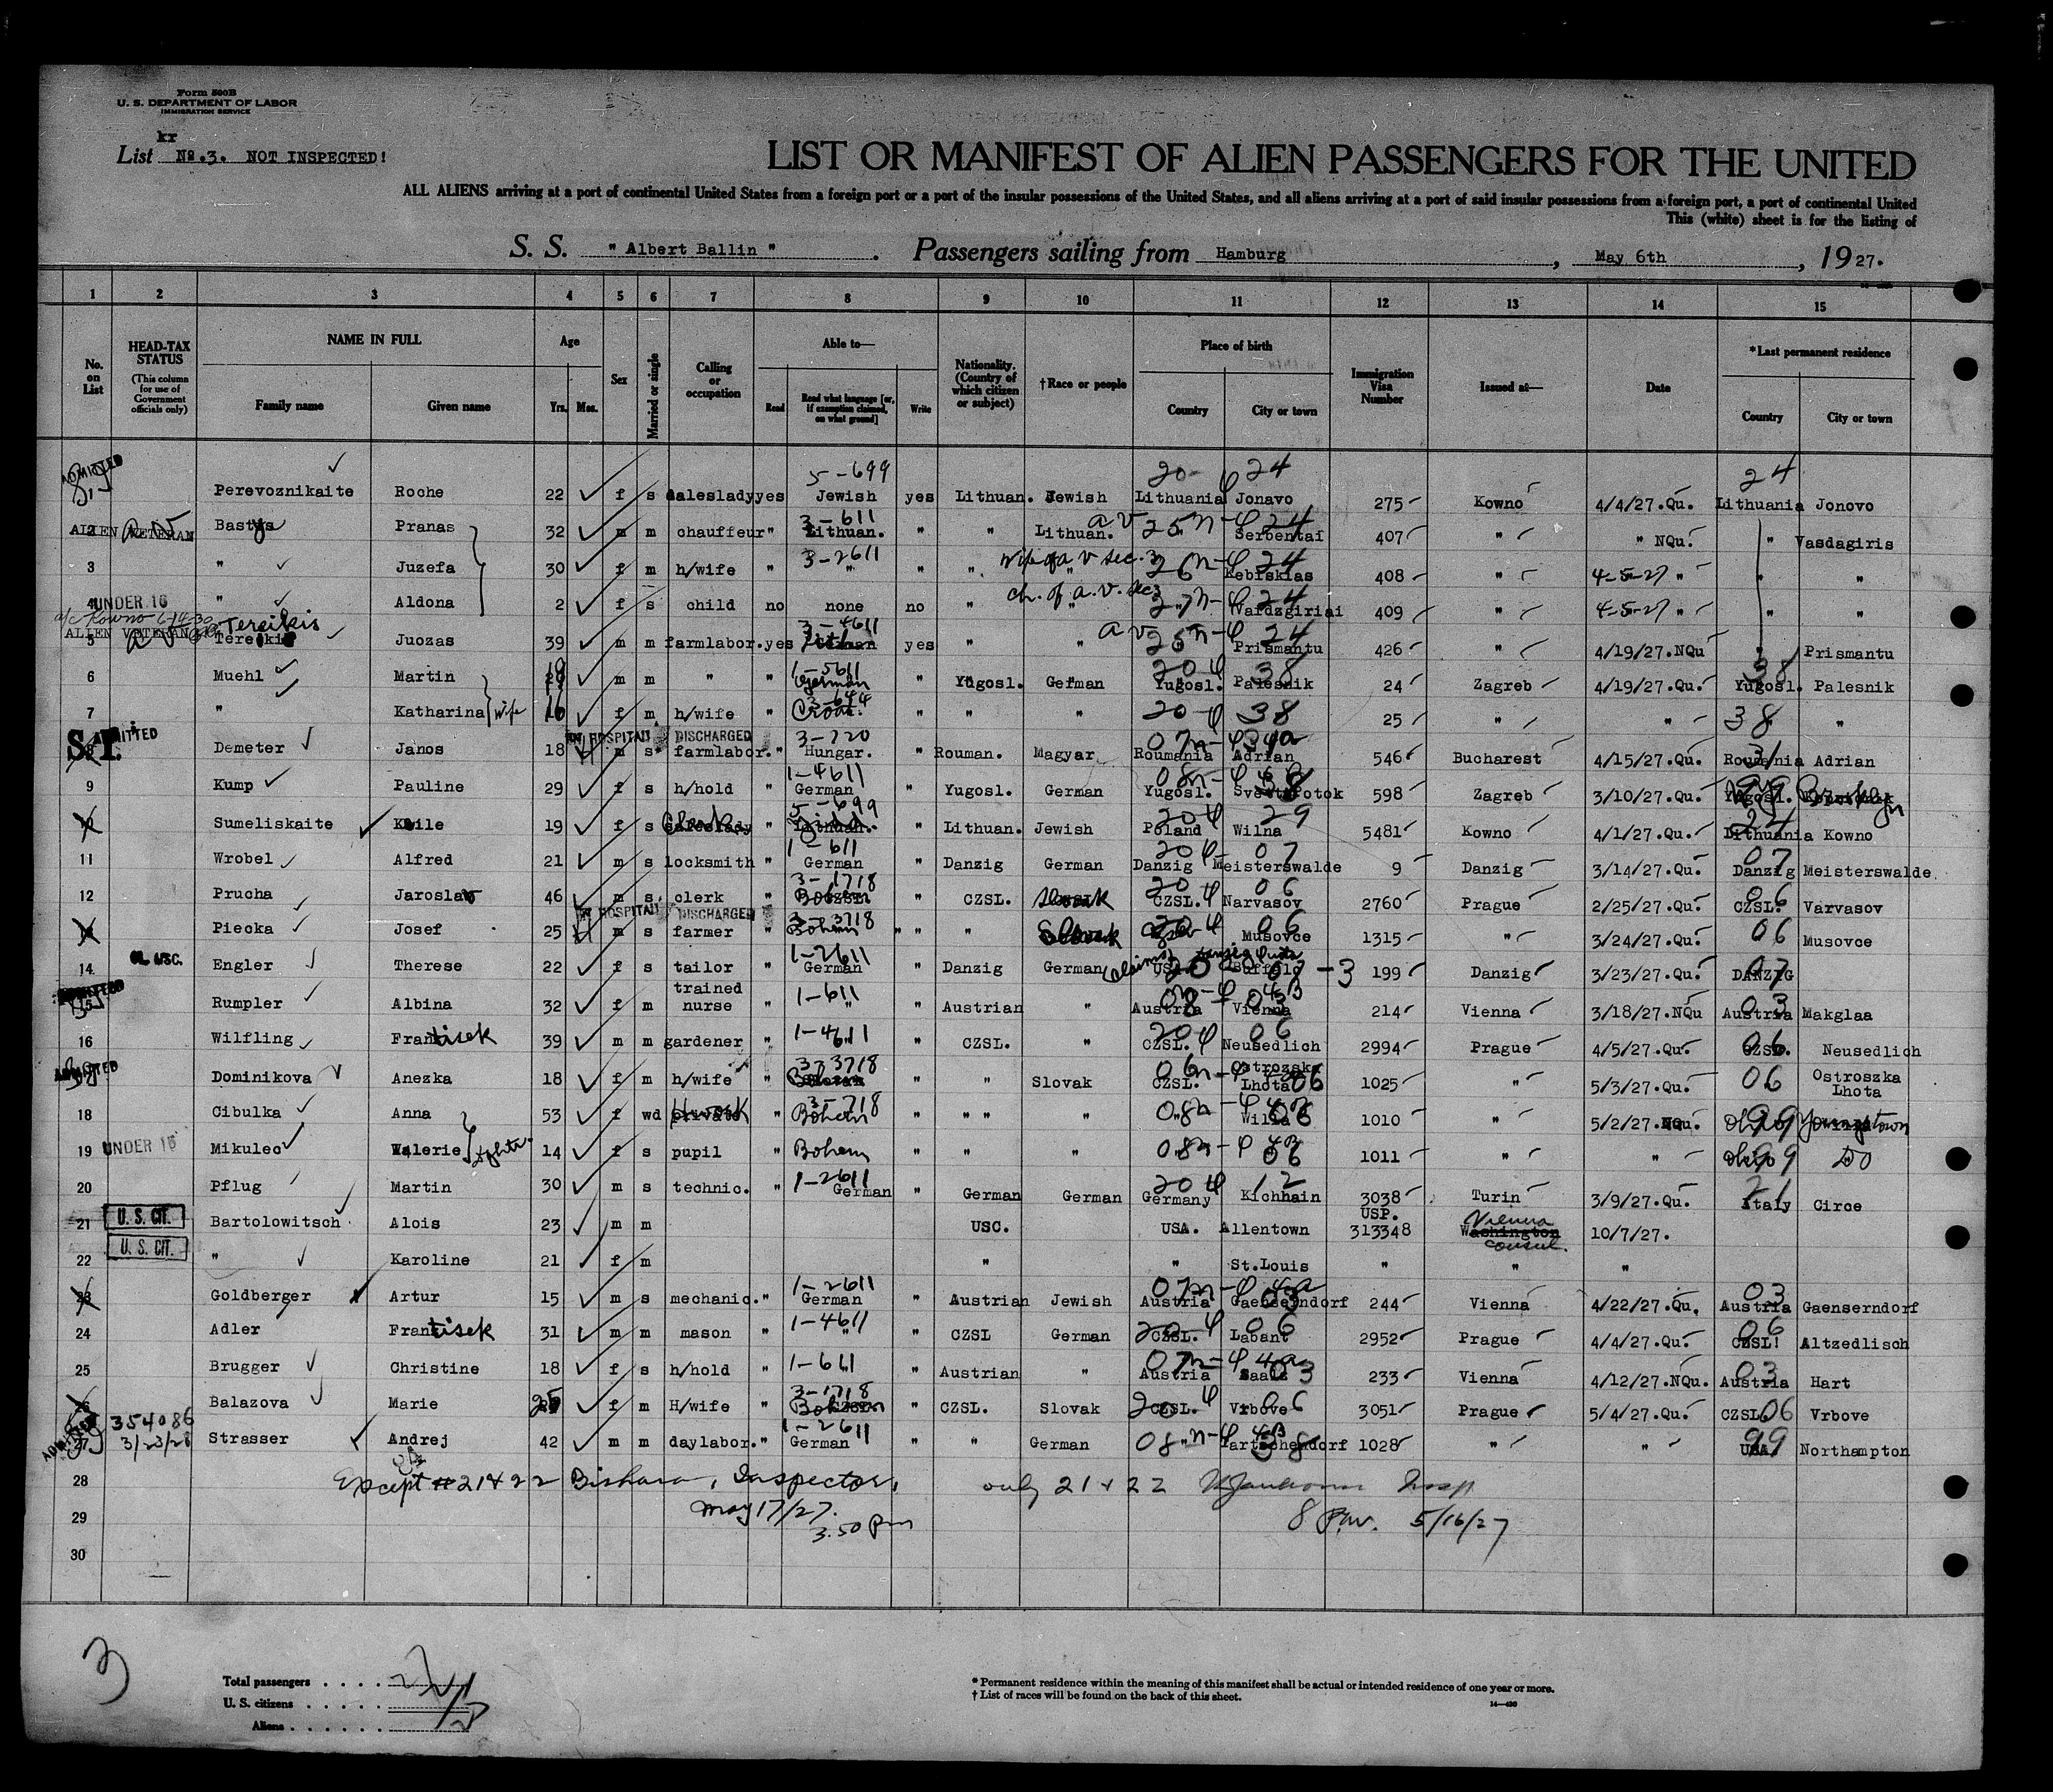 Form 500B
U. S. DEPARTMENT OF LABOR
IMMIGRATION SERVICE
kr
List No.3. NOT INSPECTED!
LIST OR MANIFEST OF ALIEN PASSENGERS FOR THE UNITED
ALL ALIENS arriving at a port of continental United States from a foreign port or a port of the insular possessions of the United States, and all aliens arriving at a port of said insular possessions from a foreign port, a port of continental United
This (white) sheet is for the listing of
S. S. " Albert Ballin " . Passengers sailing from Hamburg , May 6th , 1927.
1 2 3 4 5 6 7 8 9 10 11 12 13 14 15
No. on List
HEAD-TAX STATUS (This column for use of Government officials only)
NAME IN FULL Family name Given name
Age Yrs. Mos.
Sex
Married or single
Calling or occupation
Able to— Read Read what language [or, if exemption claimed, on what ground] Write
Nationality. (Country of which citizen or subject)
†Race or people
Place of birth Country City or town
Immigration Visa Number
Issued at—
Date
*Last permanent residence Country City or town
ADMITTED 5-699 20 24 24
Perevoznikaite Roche 22 f s saleslady yes Jewish yes Lithuan. Jewish Lithuania Jonavo 275 Kowno 4/4/27.Qu. Lithuania Jonovo
3-611 av 24
2 ALIEN VETERAN Bastys Pranas 32 m m chauffeur " Lithuan. " " Lithuan. Serbentai 407 " " NQu. " Vasdagiris
3-2611 Wife of a v sec. 3 24
3 " Juzefa 30 f m h/wife " " " " " Kebiskias 408 " 4-5-27 " " "
ch. of a. v. sec 3 24
4 UNDER 16 " Aldona 2 f s child no none no " " Vaidzgiriai 409 " 4-5-27 " " "
Tereikis 3-4611 av 24
5 ALIEN VETERAN Juozas 39 m m farmlabor. yes yes " " Prismantu 426 " 4/19/27.NQu " Prismantu
1-5611 20 38 38
6 Muehl Martin m m " " German " Yugosl. German Yugosl. Palesnik 24 Zagreb 4/19/27.Qu. Yugosl. Palesnik
7 " Katharina wife f m h/wife " Croat. " " " 20 38 25 " " 38 "
S.I. ADMITTED HOSPITAL DISCHARGED 3-720
8 Demeter Janos 18 m s farmlabor. " Hungar. " Rouman. Magyar Roumania Adrian 546 Bucharest 4/15/27.Qu. Roumania Adrian
1-4611
9 Kump Pauline 29 f s h/hold German " Yugosl. German Yugosl. 598 Zagreb 3/10/27.Qu. Yugosl. Brooklyn
5-699 20 29 24
Sumeliskaite 19 f s " " Lithuan. Jewish Poland Wilna 5481 Kowno 4/1/27.Qu. Lithuania Kowno
1-611 20 07 07
11 Wrobel Alfred 21 m s locksmith " German " Danzig German Danzig Meisterswalde 9 Danzig 3/14/27.Qu. Danzig Meisterswalde
3-1718 20 06 06
12 Prucha Jaroslav 46 m s clerk " " CZSL. CZSL. Narvasov 2760 Prague 2/25/27.Qu. CZSL. Varvasov
HOSPITAL DISCHARGED 3-3718
Piecka Josef 25 m s farmer " Bohem " " " 06 Musovce 1315 " 3/24/27.Qu. 06 Musovce
1-2611
14 USC. Engler Therese 22 f s tailor " German " Danzig German USA Buffalo 199 Danzig 3/23/27.Qu. DANZIG
1-611 03
15 Rumpler Albina 32 f m trained nurse " " " Austrian " Austria Vienna 214 Vienna 3/18/27.NQu Austria Makglaa
1-4611 20 06 06
16 Wilfling Frantisek 39 m m gardener " " " CZSL. " CZSL. Neusedlich 2994 Prague 4/5/27.Qu. CZSL. Neusedlich
ADMITTED 3-3718
Dominikova Anezka 18 f m h/wife " " " Slovak CZSL. Ostrozska Lhota 06 1025 " 5/3/27.Qu. 06 Ostroszka Lhota
3-718
18 Cibulka Anna 53 f wd " Bohem " " " " 1010 " 5/2/27.NQu. Ohio Youngstown
19 UNDER 16 Mikulec Valerie 14 f s pupil " Bohem " " " 1011 " " Ohio Do
1-2611 20 12 21
20 Pflug Martin 30 m s technic. " German " German German Germany Kichhain 3038 Turin 3/9/27.Qu. Italy Circe
21 U. S. CIT. Bartolowitsch Alois 23 m m USC. USA. Allentown USP. 313348 Washington Vienna consul. 10/7/27.
22 U. S. CIT. " Karoline 21 f m " " St.Louis " " "
1-2611 03
Goldberger Artur 15 m s mechanic. " German " Austrian Jewish Austria Gaenserndorf 244 Vienna 4/22/27.Qu. Austria Gaenserndorf
1-4611 06 06
24 Adler Frantisek 31 m m mason " " " CZSL German CZSL. Labant 2952 Prague 4/4/27.Qu. CZSL. Altzedlisch
1-611 03
25 Brugger Christine 18 f s h/hold " " Austrian " Austria 233 Vienna 4/12/27.NQu. Austria Hart
3-1718
Balazova Marie f m H/wife " " CZSL. Slovak 20 CZSL. Vrbove 06 3051 Prague 5/4/27.Qu. CZSL. 06 Vrbove
354086 3/23/28 1-2611
27 Strasser Andrej 42 m m daylabor. " German " " German 1028 " " USA 99 Northampton
28 Except #21&22 Bishara, Inspector, only 21 & 22
29 May 17/27. 3.50 pm 8 P.M. 5/16/27
30
3
Total passengers . . . .
U. S. citizens . . . . .
Aliens . . . . . .
* Permanent residence within the meaning of this manifest shall be actual or intended residence of one year or more.
† List of races will be found on the back of this sheet.
14—430